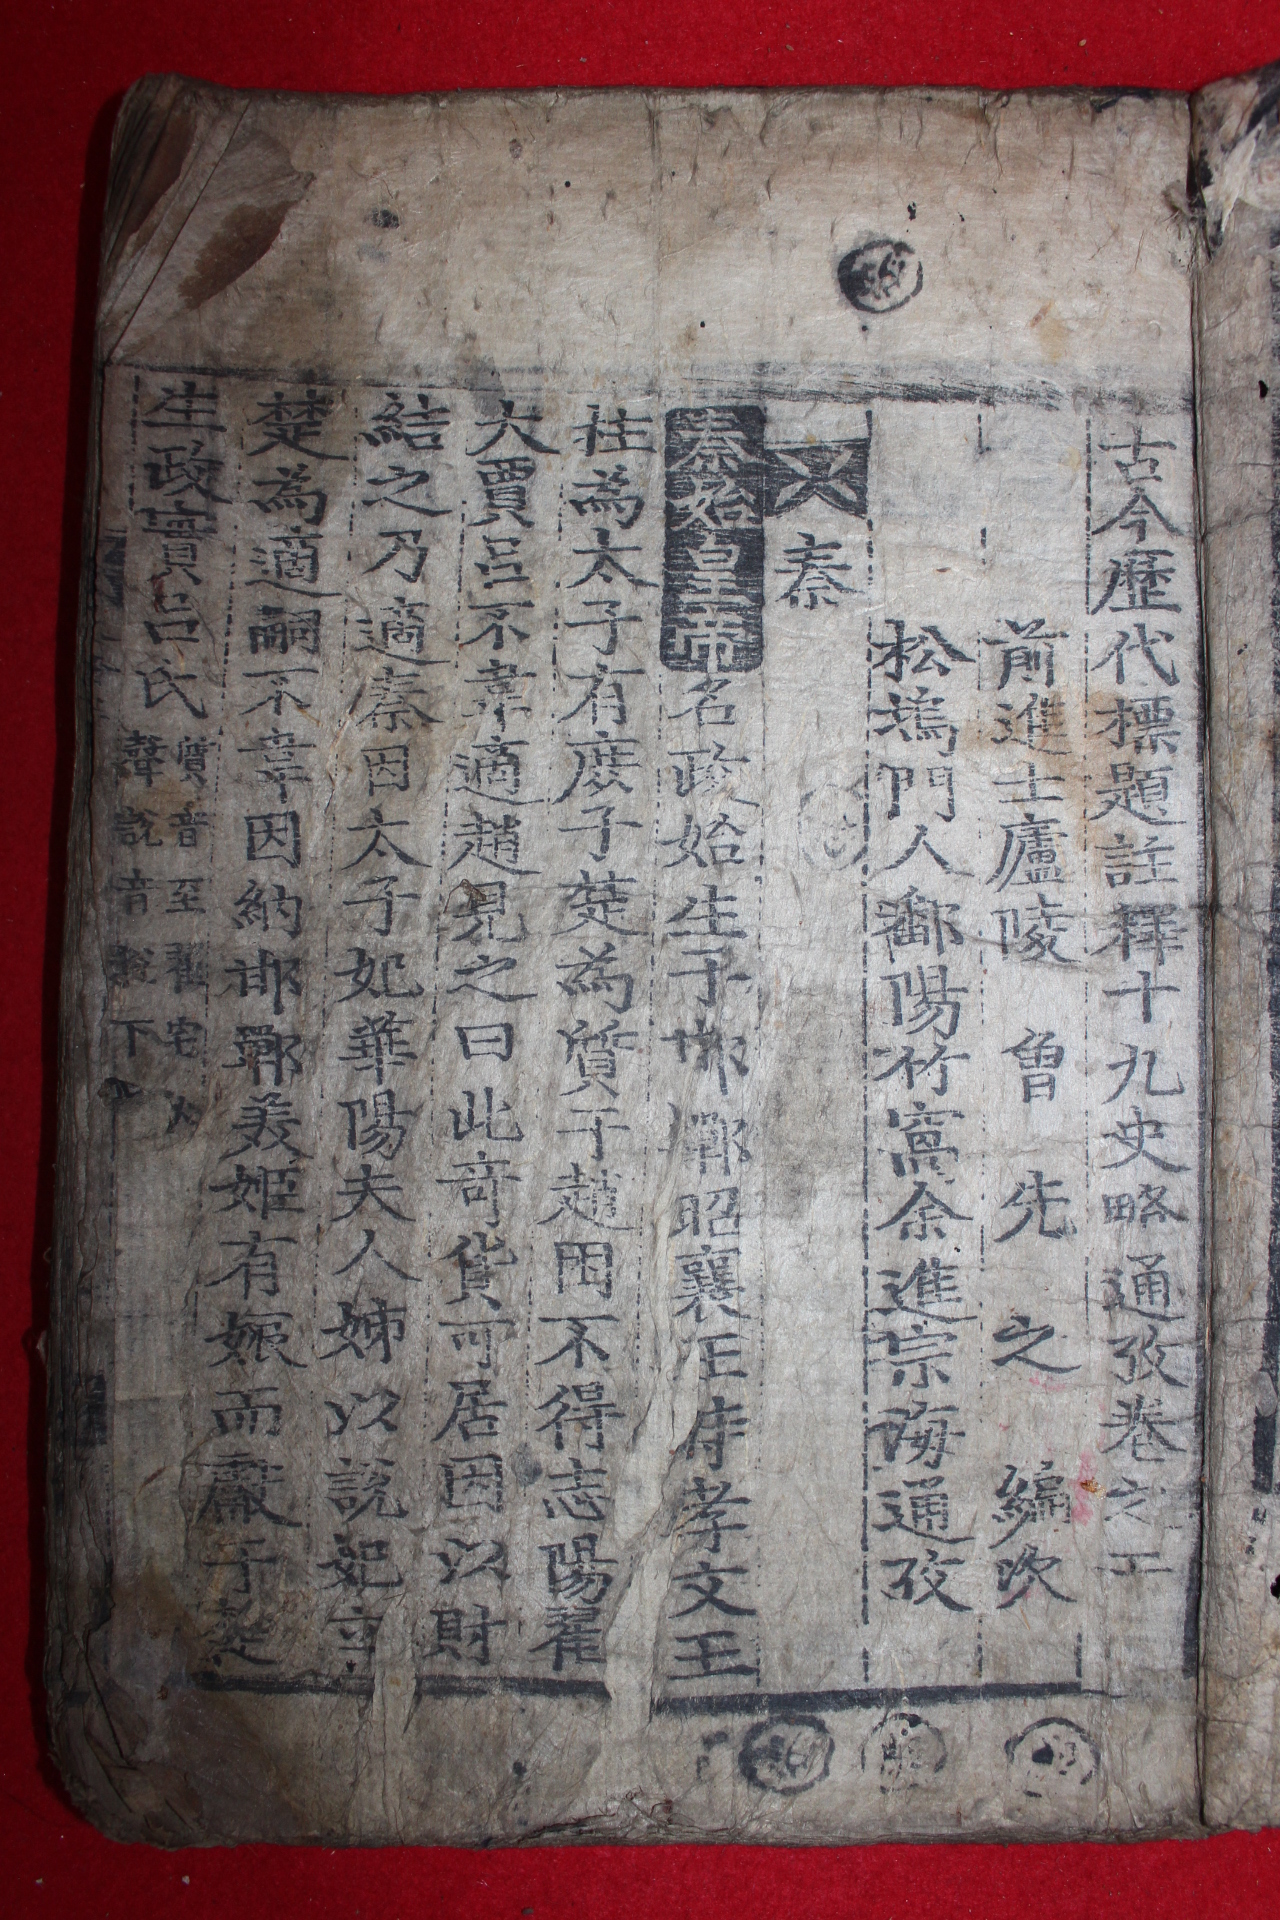 古今歷代標題註釋十九史略通攷卷之二
前進士廬陵 曾 先 之 編次
松塢門人鄱陽竹窩余進宗海通攷
秦
秦始皇帝名政始生于邯鄲昭襄王時孝文王
柱為太子有庶子楚為質于趙困不得志陽翟
大賈呂不韋適趙見之曰此奇貨可居因以財
結之乃適秦因太子妃華陽夫人姊以說妃立
楚為適嗣不韋因納邯鄲美姬有娠而獻于楚
生政實呂氏
質音至翟宅入
聲說音稅下